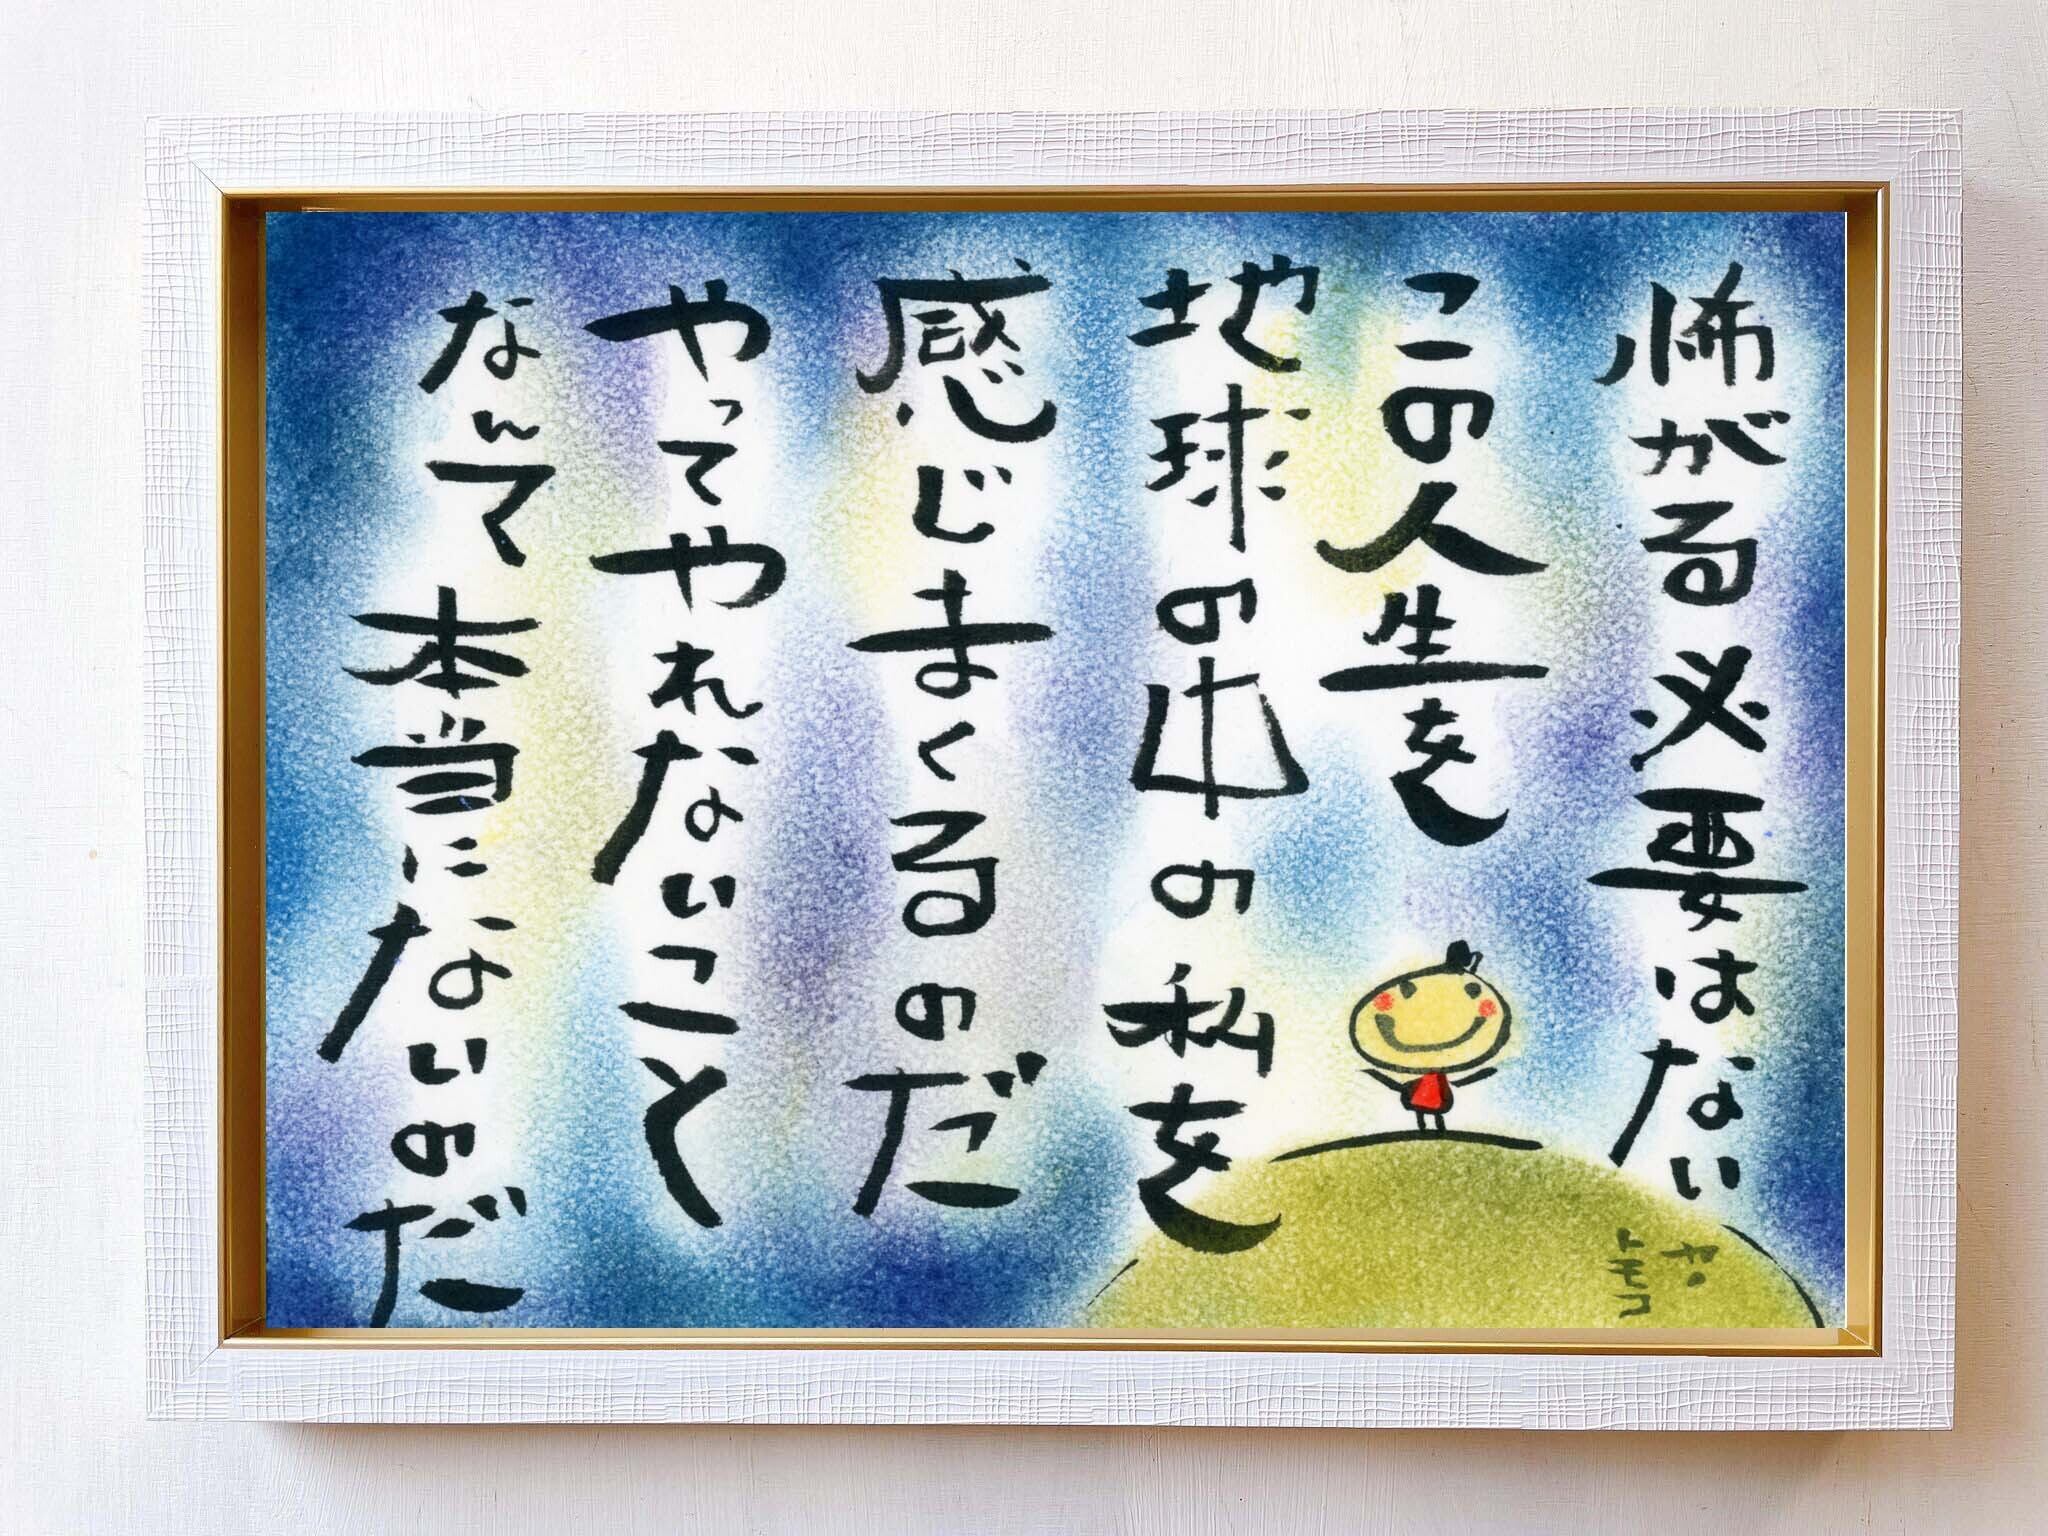 怖がる必要はない
この人生を
地球の中の私を
感じまくるのだ
やってやれないこと
なんて本当にないのだ
トモコ